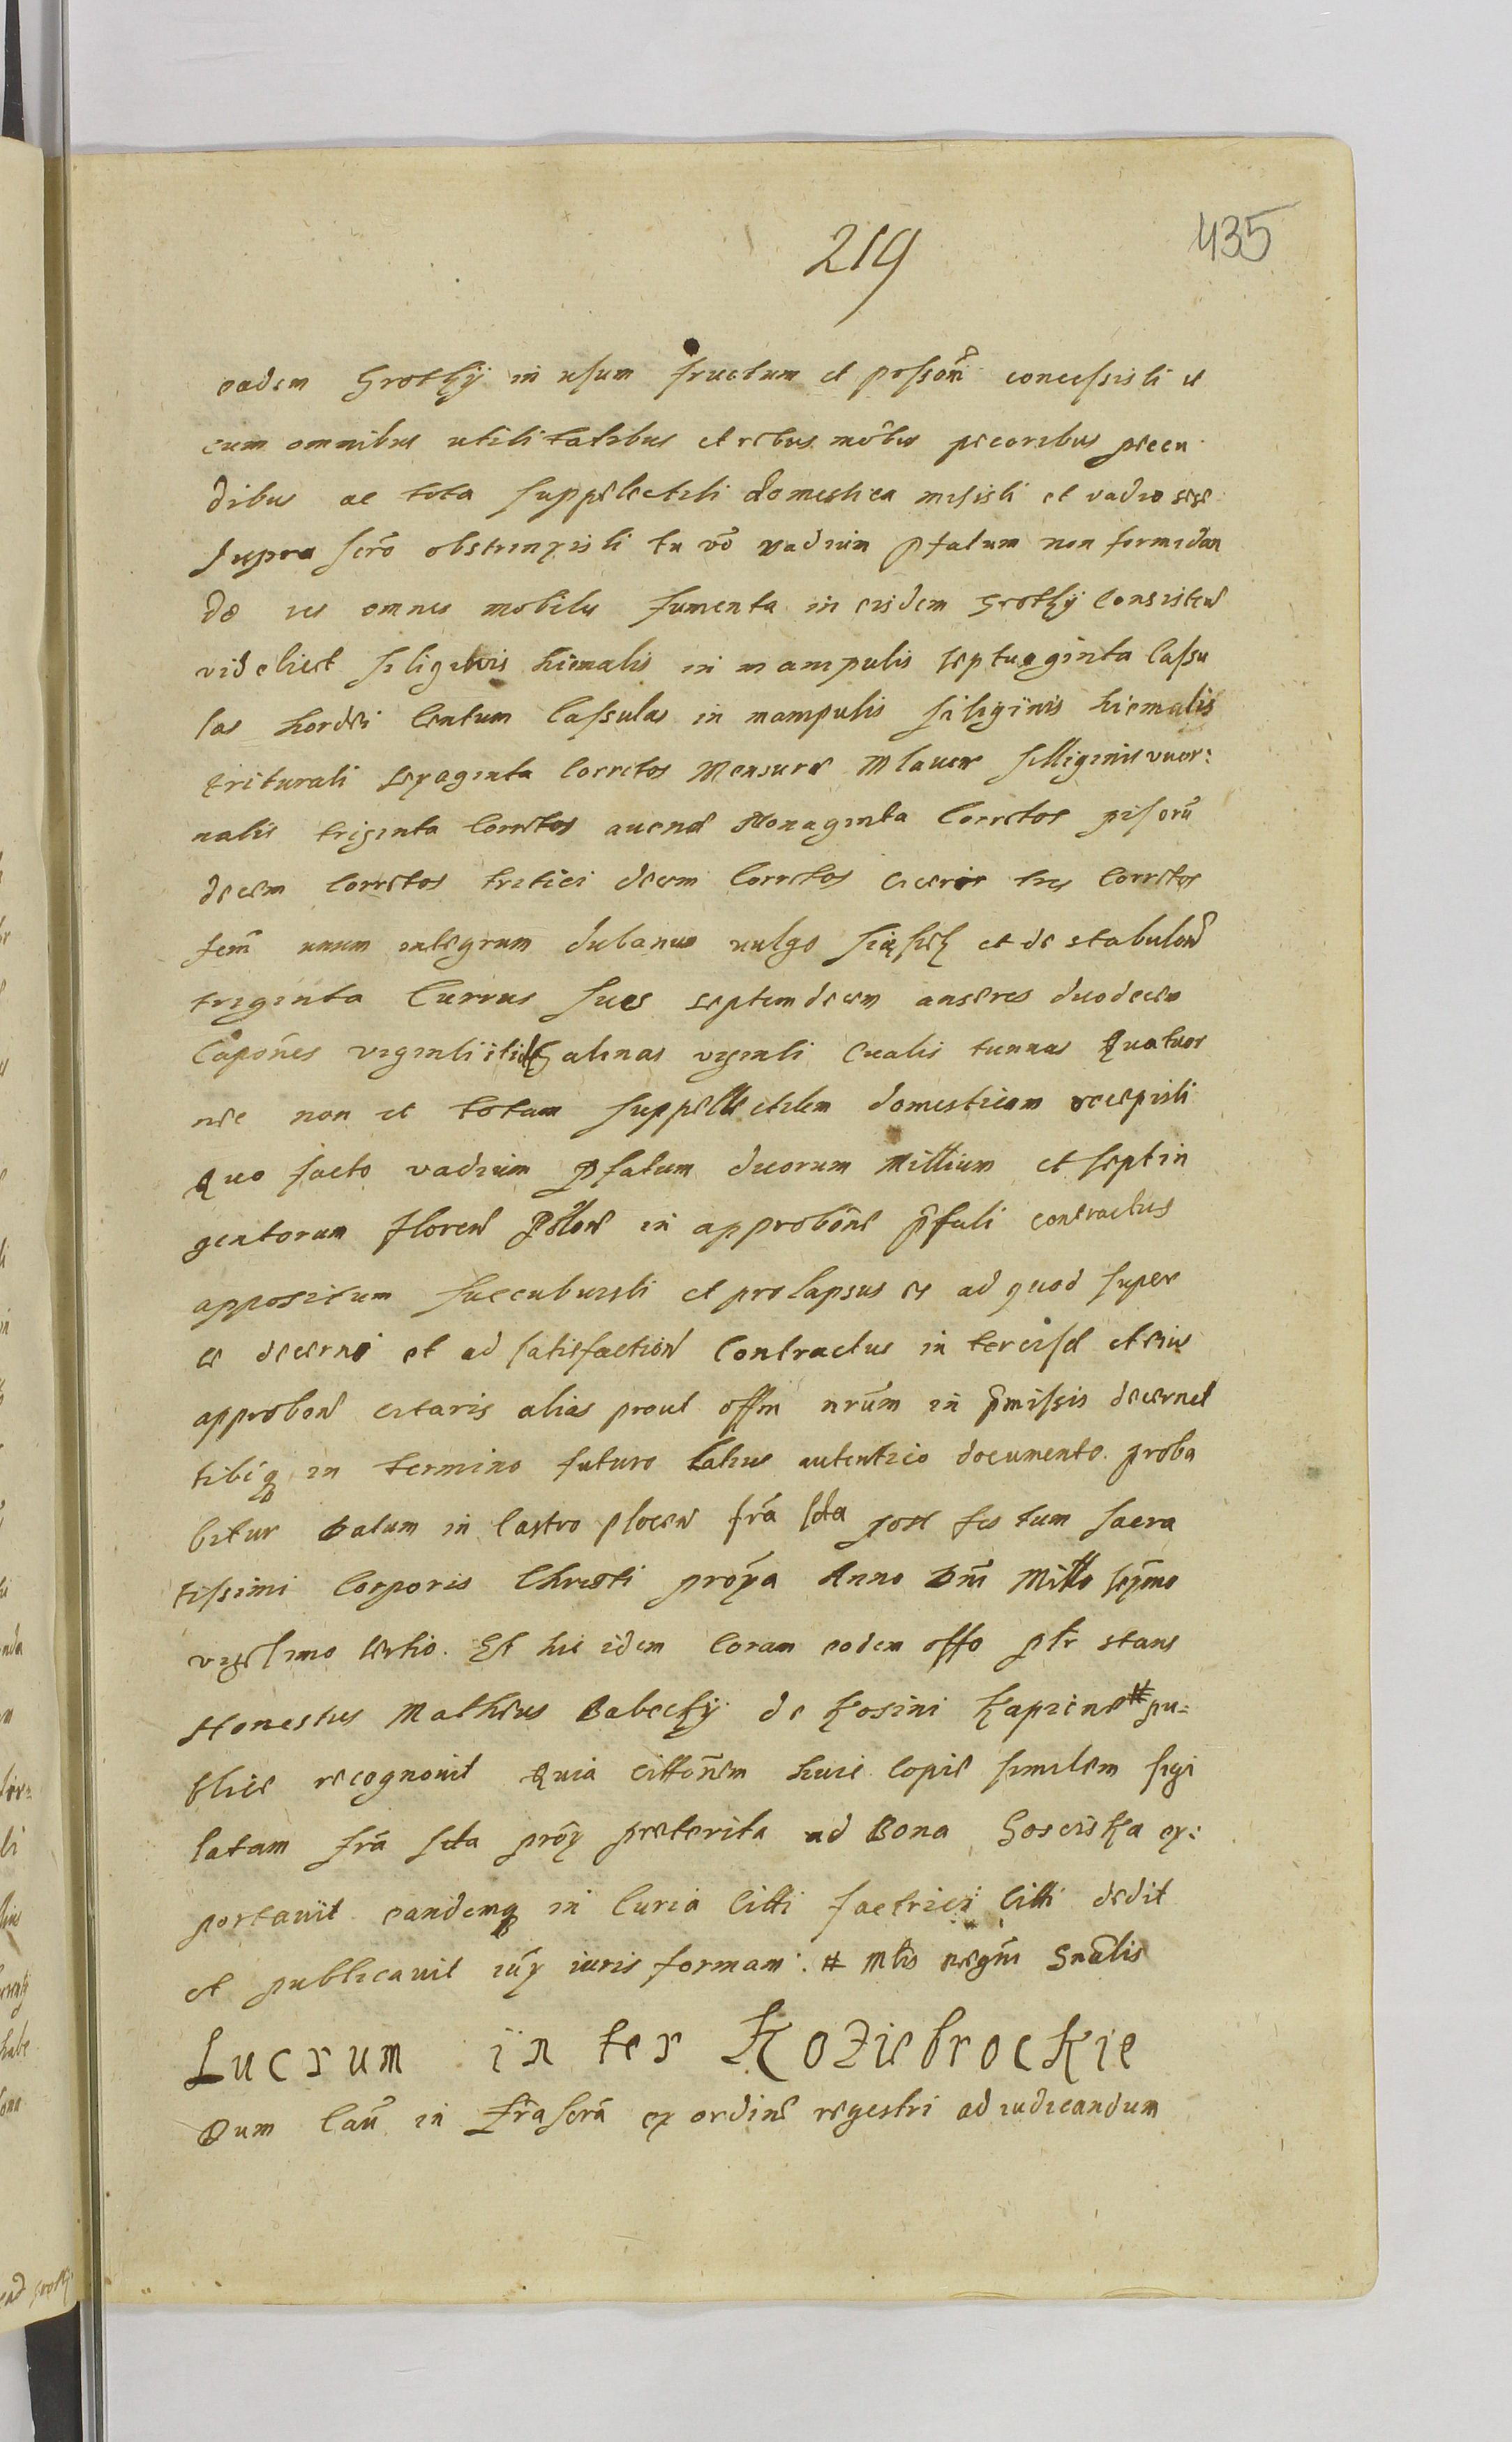 219
435
eadem Grothÿ in usum fructum et possoñ concessisti et
cum omnibus utilitatibus et rebus mōbis pecoribus pecu
dibus ac tota suppelectili domestica misisti et vadio sese
supra scrõ obstrinxisti tu võ vadium pfatum non formidan
do res omnes mobiles frumenta in eisdem Grothÿ consisten
videlicet siliginis hiemalis in manipulis septuaginta cassu
las hordei Centum Cassulas in manipulis siliginis hiemalis
triturati sexaginta Corretos Mensure Mlaven silliginis vuer:
nalis triginta Corretos avenae Nonaginta Corretos pisorũ
decem Corretos tritici decem Corretos ciceris tres Corretos
fem̃ unum integrum dubanus vulgo et de stabulon
triginta Currus sues septemdecem anseres duodecem
Capoñes viginti itid Galinas viginti Cualis tunnas Quatuor
nec non et totam suppellectilem domesticam recepisti
Quo facto vadium pfatum duorum Millium et septin
gentorum floren Polon in approbone pfati contractus
appositum succubuisti et prolapsus es ad quod super
es decerni et ad satisfaction Contractus in tercisa et eius
approbon citaris alias prout offm nrũm in pmissis decernet
tibiq in termino futuro latius autentico documento proba
bitur Datum in Castro plocen fr̃a scta post festum sacra
tissimi Corporis Christi prox̃a Anno Dni Millo sexmo
vigesimo tertio. Et hic idem Coram eodem offo ptr stans
Honestus Matheus Babeckÿ de Kosini Kapicne # pu=
blice recognovit Quia cittoñem huic copie similem sigi
latam fr̃a scta prox̃ preterita ad Bona Gosciska ex:
portavit eandemq in Curia Citti factrici Citti dedit
et publicavit iux̃ iuris formam: # Mtis regiñi Gnalis
Lucrum in ter Koziebrockie
Dum Cau in fr̃ascrã ex ordine regestri ad iudicandum